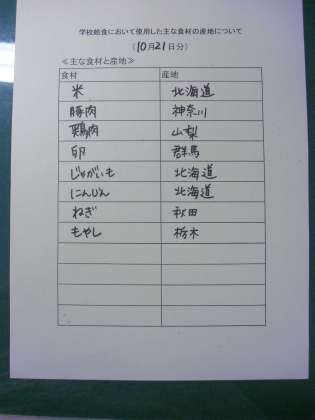 学校給食において使用した主な食材の産地について
（10月21日分）
≪主な食材と産地≫
食材 産地
米 北海道
豚肉 神奈川
鶏肉 山梨
卵 群馬
じゃがいも 北海道
にんじん 北海道
ねぎ 秋田
もやし 栃木